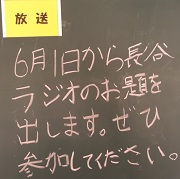 放送
6月1日から長谷
ラジオのお題を
出します。ぜひ
参加してください。